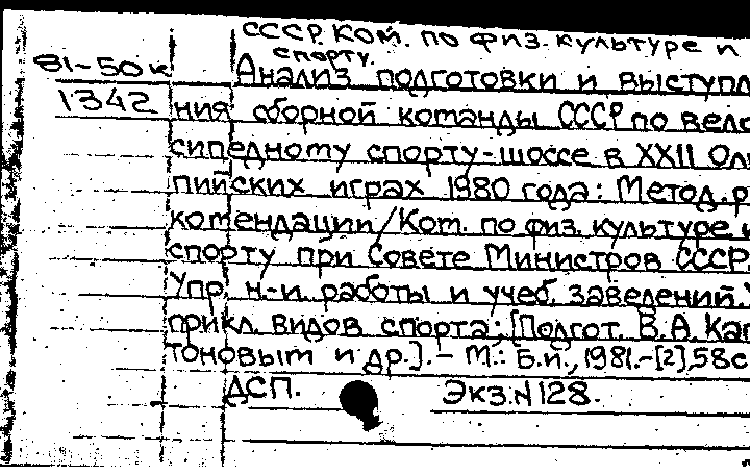 СССР. Ком. по физ. культуре и
спорту.
81-50к
Анализ подготовки и выступл
1342
ния сборной команды СССР по вело
сипедному спорту-шоссе в XXII Оли
пийских играх 1980 года: Метод. р
комендации/Ком. по физ. культуре и
спорту при Совете Министров СССР.
Упр. н.-и. работы и учеб. заведений.
прикл. видов спорта; [Подгот. В.А. Кап
тоновым и др.].- М.: Б.и., 1981.-[2], 58с
ДСП.
Экз. N 128.